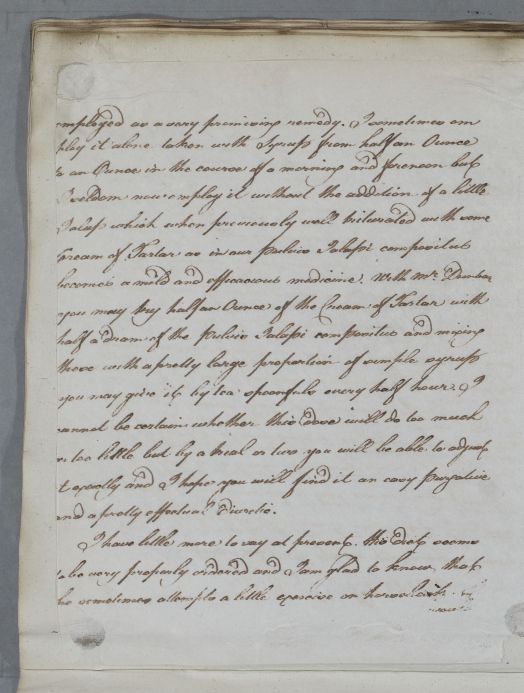 employed as a very promising remedy. I sometimes em
ploy it alone taken with Syrup from half an Ounce
to an Ounce in the course of a morning and forenoon but
Seldom now employ it without the addition of a little
Jalap which when previously well triturated with some
Cream of Tartar as in our pulvis Jalapi compositus
becomes a mild and efficacious medicine. With Mr. Dunbar
you may try half an Ounce of the Cream of Tartar with
half a dram of the pulvis Jalapi compositus and mixing
these with a pretty large proportion of simple syrup
you may give it by tea spoonfuls every half hour. I
cannot be certain whether this dose will do too much
or too little but by a trial or two you will be able to adjust
it exactly and I hope you will find it an easy purgative
and a pretty effectual Diuretic.
I have little more to say at present. His Diet seems
to be very properly ordered and I am glad to know that
he sometimes attempts a little exercise on horseback